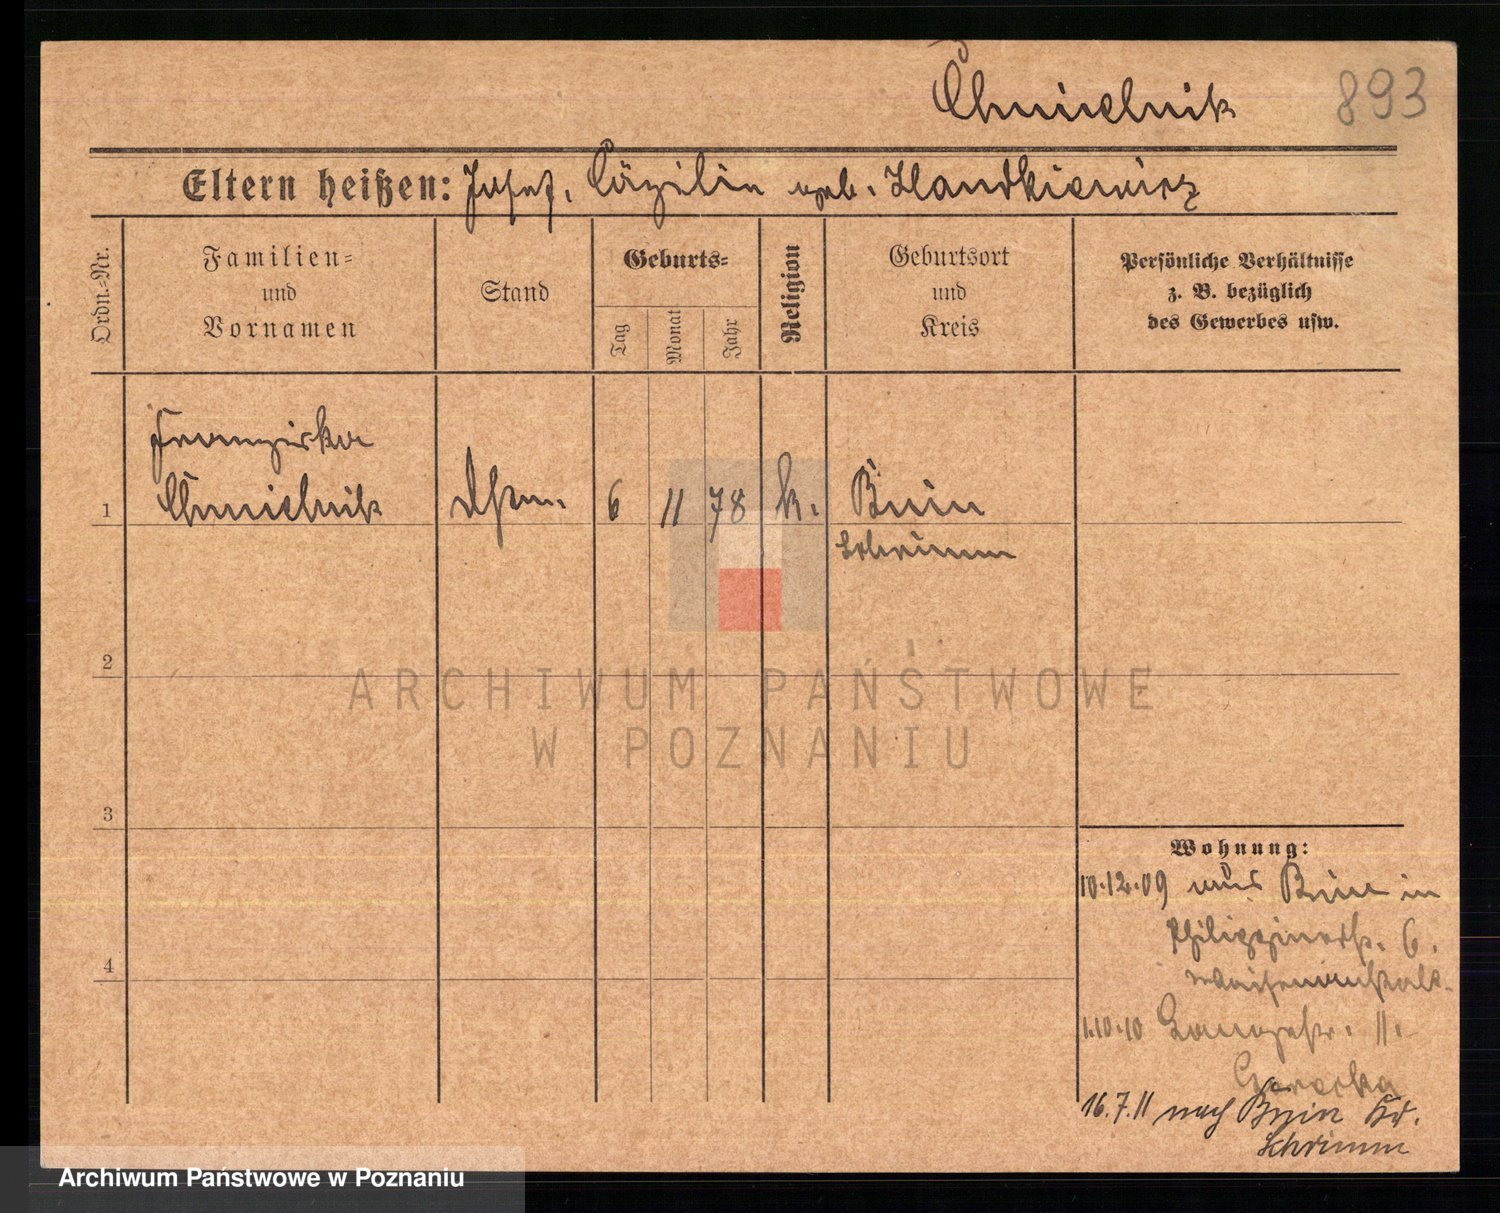 Chmielnik
893
Eltern heißen: Josef, Cäzilia geb. Handkiewicz
Ordn.-Nr.
Familien-
und
Vornamen
Stand
Geburts-
Tag
Monat
Jahr
Religion
Geburtsort
und
Kreis
Persönliche Verhältnisse
z. B. bezüglich
des Gewerbes usw.
Franziska
1 Chmielnik 6 11 78 k. Bnin
Schrimm
2
ARCHIWUM PAŃSTWOWE
W POZNANIU
3
Wohnung:
10.12.09 aus Bnin in
Philippinerstr. 6.
Waisenanstalt.
4
1.10.10 Langestr. 11.
16.7.11 nach Bnin Kr.
Schrimm
Archiwum Państwowe w Poznaniu